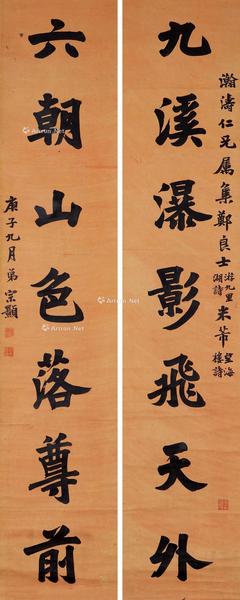 九溪瀑影飛天外
瀚濤仁兄属集鄭良士游九里湖詩米芾望海樓詩
六朝山色落尊前
庚子九月弟宗顥